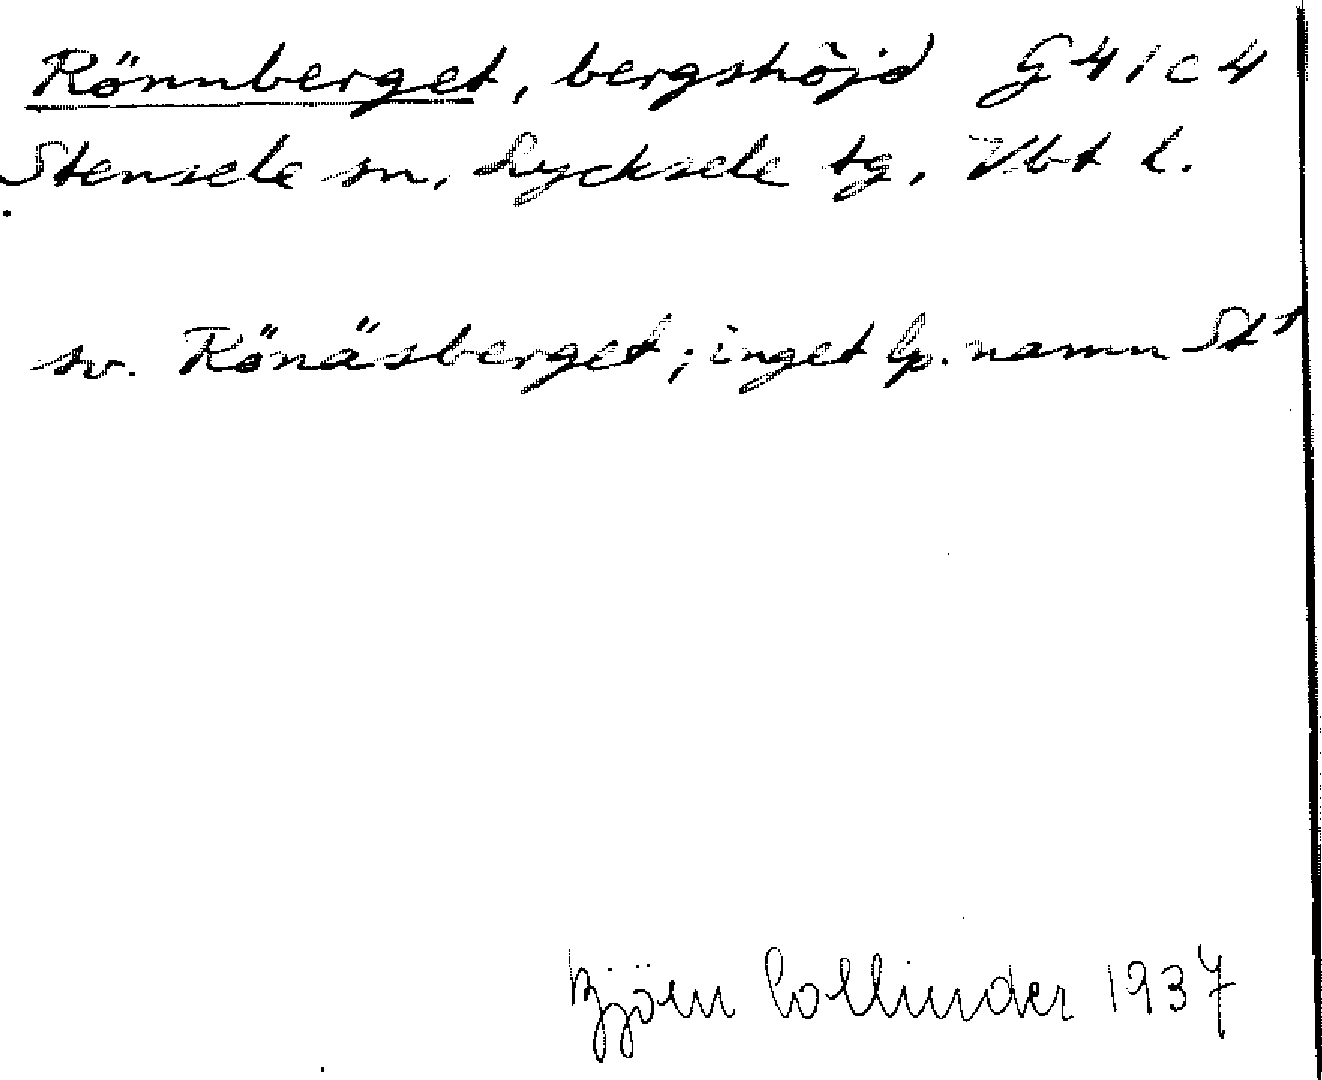 Rönnberget, bergshöjd G41c4
Stensele sn, Lycksele tg, Vbt l.
sv. Rönäsberget; inget lp. namn St¹
Björn Collinder 1937